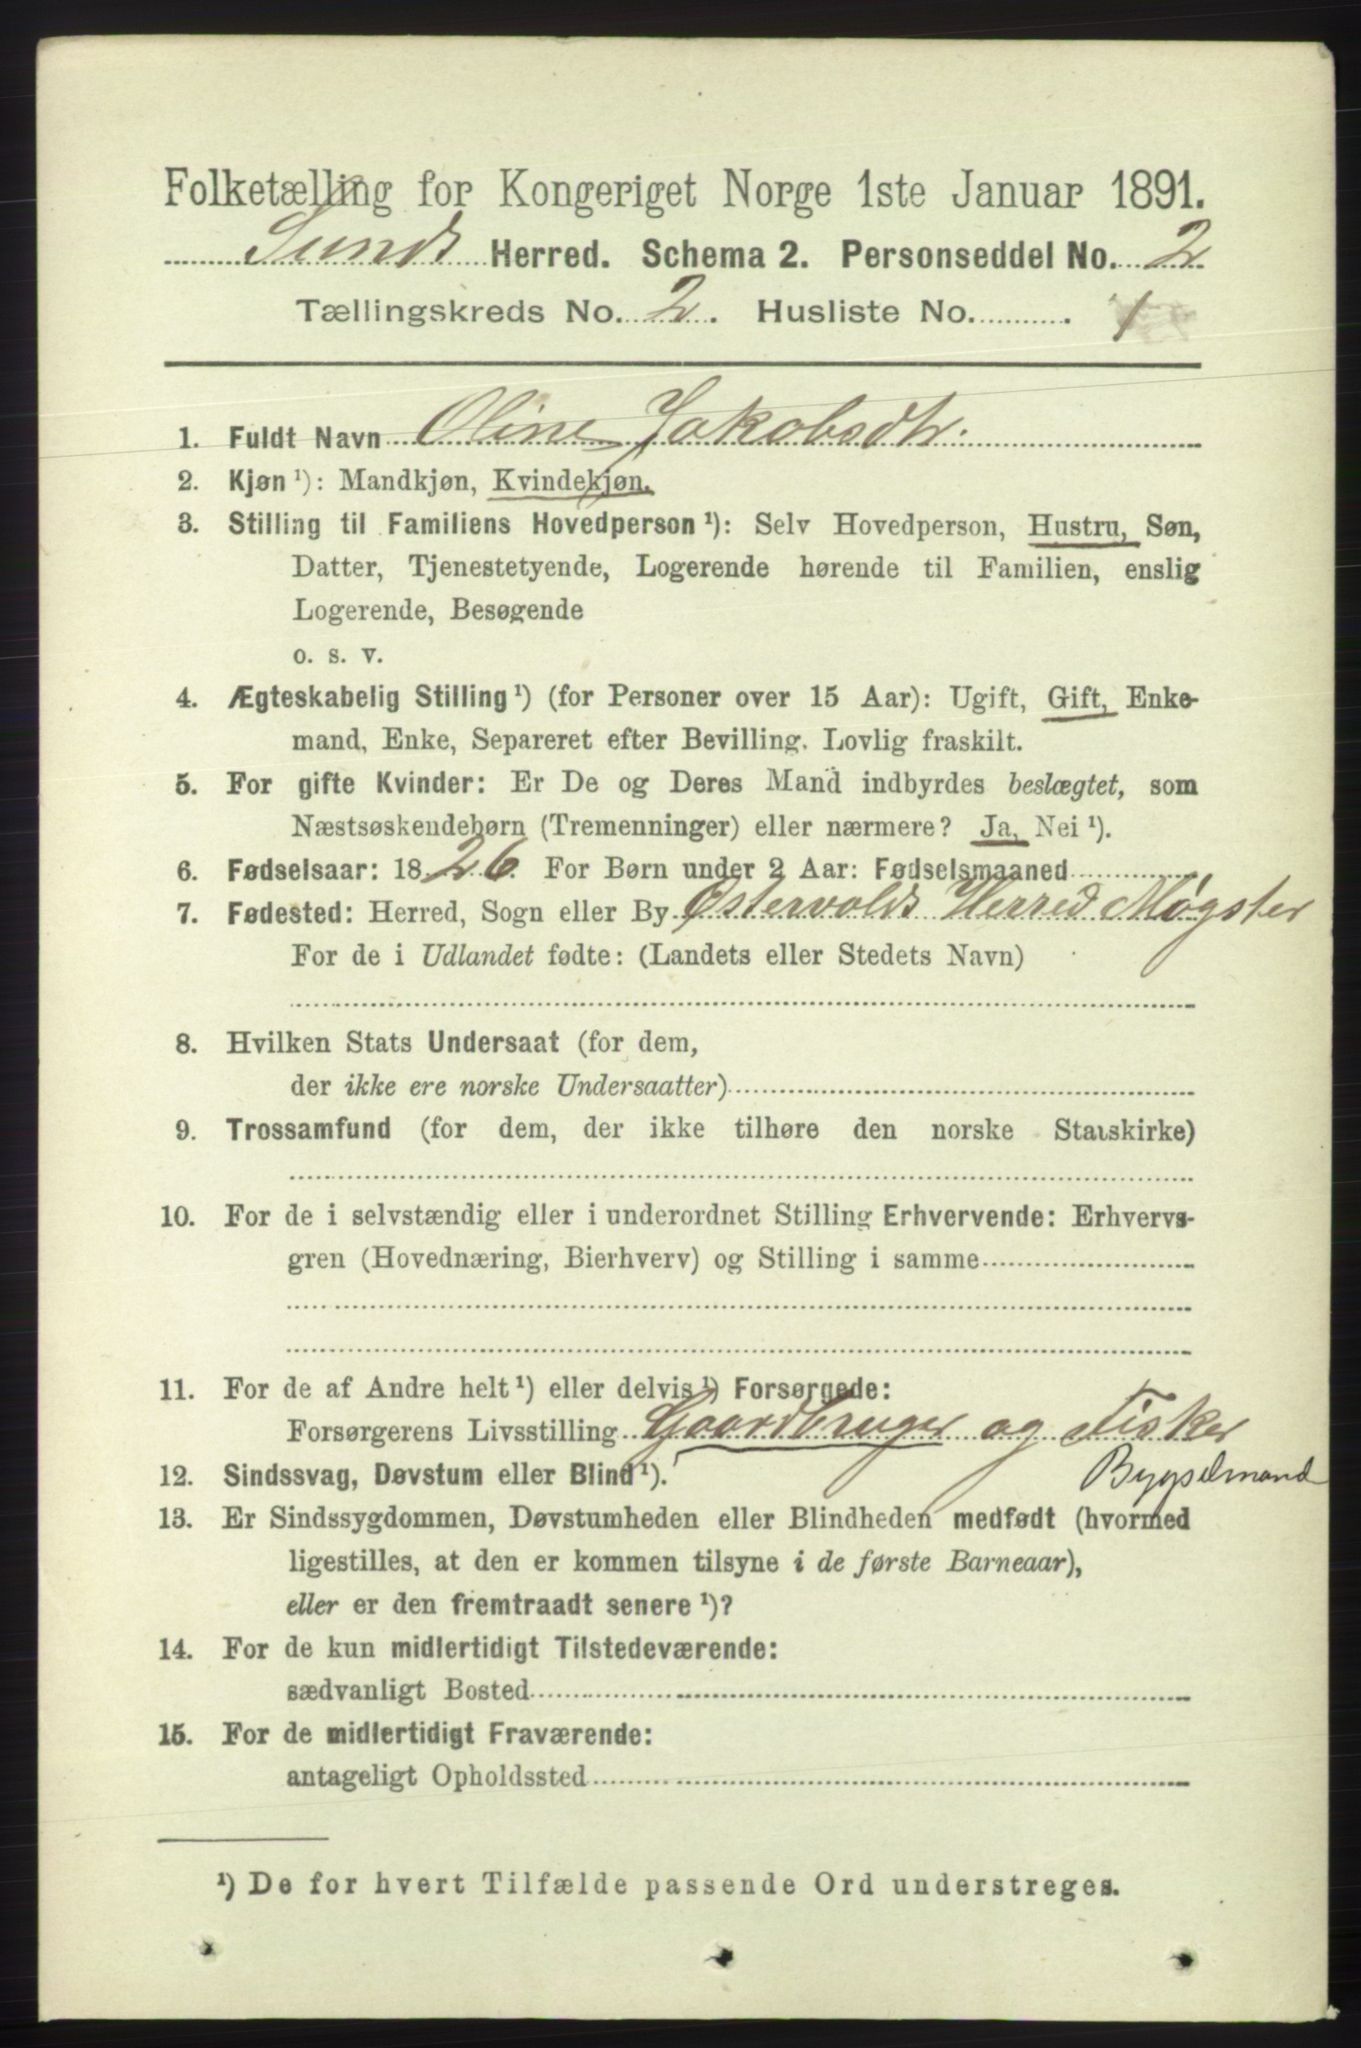 Folketælling for Kongeriget Norge 1ste Januar 1891.
Sunds Herred. Schema 2. Personseddel No. 2
Tællingskreds No. 2. Husliste No. 1
1. Fuldt Navn Oline Jakobsdtr.
2. Kjøn ¹): Mandkjøn, Kvindekjøn.
3. Stilling til Familiens Hovedperson ¹): Selv Hovedperson, Hustru, Søn,
Datter, Tjenestetyende, Logerende hørende til Familien, enslig
Logerende, Besøgende
o. s. v.
4. Ægteskabelig Stilling ¹) (for Personer over 15 Aar): Ugift, Gift, Enke-
mand, Enke, Separeret efter Bevilling. Lovlig fraskilt.
5. For gifte Kvinder: Er De og Deres Mand indbyrdes beslægtet, som
Næstsøskendebørn (Tremenninger) eller nærmere? Ja, Nei ¹).
6. Fødselsaar: 1826. For Børn under 2 Aar: Fødselsmaaned
7. Fødested: Herred, Sogn eller By Østervolds Herred Møgster
For de i Udlandet fødte: (Landets eller Stedets Navn)
8. Hvilken Stats Undersaat (for dem,
der ikke ere norske Undersaatter)
9. Trossamfund (for dem, der ikke tilhøre den norske Statskirke)
10. For de i selvstændig eller i underordnet Stilling Erhvervende: Erhvervs-
gren (Hovednæring, Bierhverv) og Stilling i samme
11. For de af Andre helt ¹) eller delvis ¹) Forsørgede:
Forsørgerens Livsstilling Gaardbruger og Fisker
12. Sindssvag, Døvstum eller Blind ¹). Bygselmand
13. Er Sindssygdommen, Døvstumheden eller Blindheden medfødt (hvormed
ligestilles, at den er kommen tilsyne i de første Barneaar),
eller er den fremtraadt senere ¹)?
14. For de kun midlertidigt Tilstedeværende:
sædvanligt Bosted
15. For de midlertidigt Fraværende:
antageligt Opholdssted
¹) De for hvert Tilfælde passende Ord understreges.